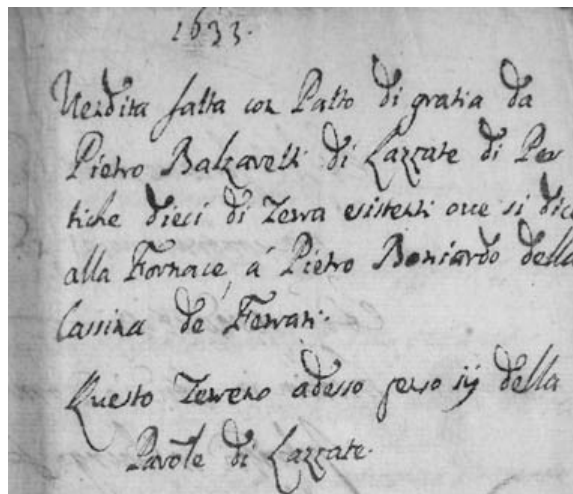 1633.
Vendita fatta con Patto di gratia da
Pietro Balzarelli di Lazzate di Per
tiche dieci di Terra esistenti oue si dice
alla Fornace, à Pietro Boniardo della
Cassina de Ferrari.
Questo Terreno adesso della
di Lazzate.